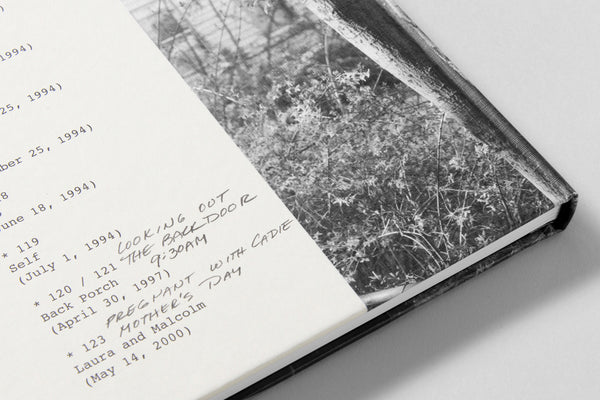 1994)
25, 1994)
ber 25, 1994)
8
June 18, 1994)
* 119
Self
(July 1, 1994)
LOOKING OUT
THE BACK DOOR
9:30AM
* 120 / 121
Back Porch
(April 30, 1997)
PREGNANT WITH CADIE
MOTHER'S DAY
* 123
Laura and Malcolm
(May 14, 2000)